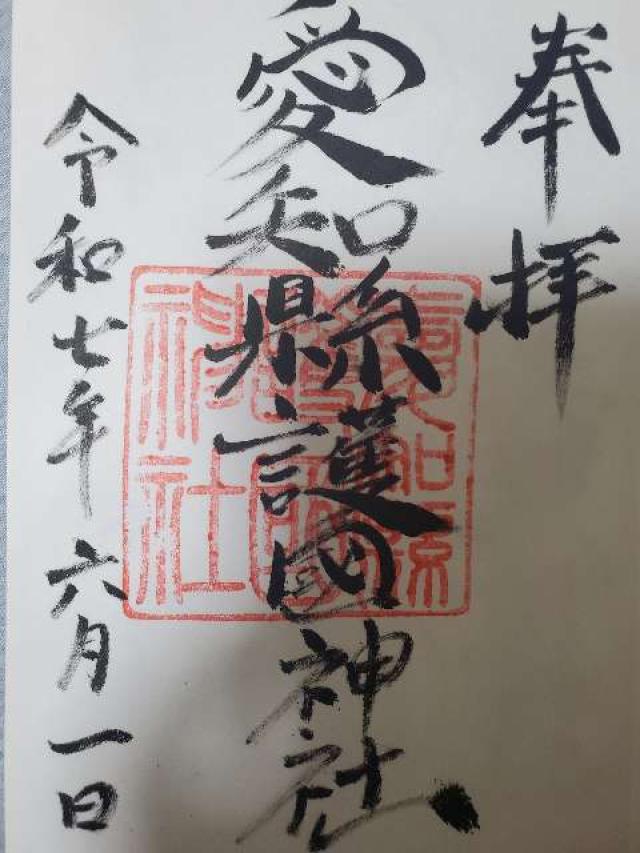 奉拝
愛知縣護國神社
愛知縣護國神社
令和七年六月一日